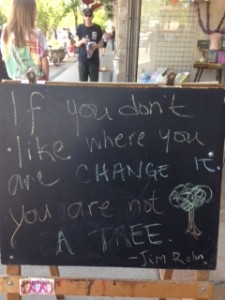 If you don't
like where you
are CHANGE IT.
you are not
A TREE.
-Jim Rohn